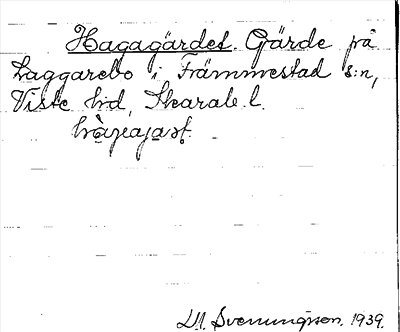 Hagagärdet. Gärde på
Laggarebo i Främmestad s:n,
Viste hd, Skarab. l.
Svenungsson. 1939.